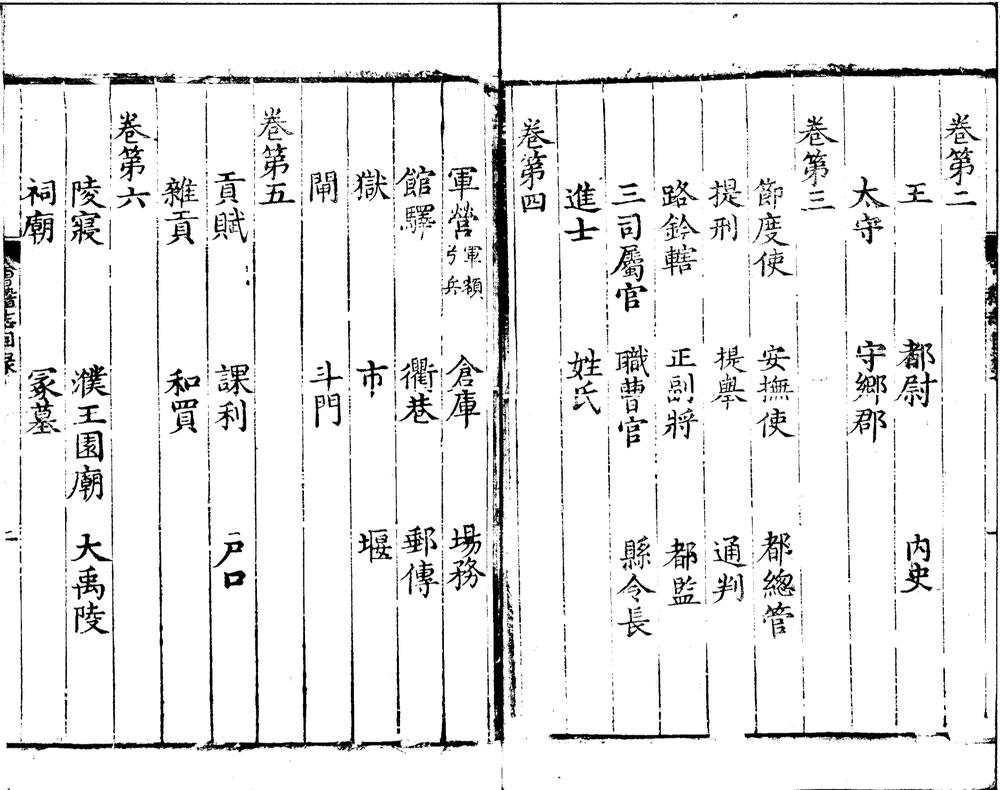 卷第二
王 都尉 內史
太守 守鄉郡
卷第三
節度使 安撫使 都總管
提刑 提舉 通判
路鈐轄 正副將 都監
三司屬官 職曹官 縣令長
進士 姓氏
卷第四
軍營 軍額 弓兵 倉庫 場務
館驛 衢巷 郵傳
獄 市 堰
閘 斗門
卷第五
貢賦 課利 戶口
雜貢 和買
卷第六
陵寢 濮王園廟 大禹陵
祠廟 冢墓
會稽志目錄
二